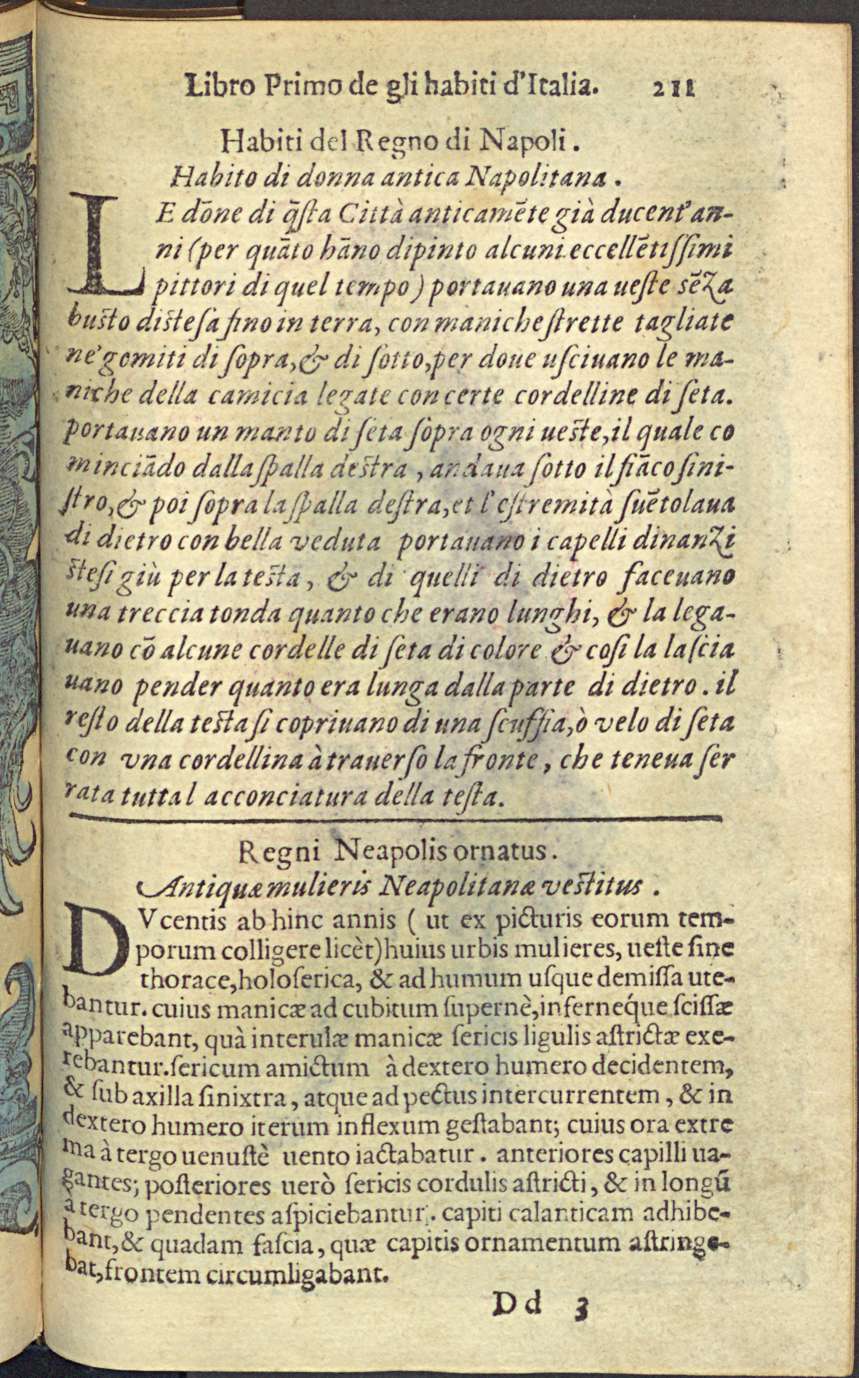 Libro Primo de gli habiti d'Italia. 211
Habiti del Regno di Napoli.
Habito di donna antica Napolitana.
LE dōne di q̄sta Città anticamēte già ducent'an-
ni (per quāto hāno dipinto alcuni eccellētissimi
pittori di quel tempo) portauano una ueste sēza
busto distesa fino in terra, con maniche strette tagliate
ne' gomiti di sopra, & di sotto, per doue usciuano le ma-
niche della camicia legate con certe cordelline di seta.
portauano un manto di seta sopra ogni ueste, il quale co
minciādo dalla spalla destra, andaua sotto il fiāco sini-
stro, & poi sopra la spalla destra, et l'estremità suētolaua
di dietro con bella veduta portauano i capelli dinanzi
stesi giù per la testa, & di quelli di dietro faceuano
una treccia tonda quanto che erano lunghi, & la lega-
uano cō alcune cordelle di seta di colore & cosi la lascia
uano pender quanto era lunga dalla parte di dietro. il
resto della testa si copriuano di una scuffia, ò velo di seta
con vna cordellina à trauerso la fronte, che teneua ser
rata tutta l acconciatura della testa.
Regni Neapolis ornatus.
Antiquæ mulieris Neapolitanæ vestitus.
DVcentis ab hinc annis ( ut ex picturis eorum tem-
porum colligere licèt) huius urbis mulieres, ueste sine
thorace, holoserica, & ad humum usque demissa ute-
bantur. cuius manicæ ad cubitum supernè, inferneq́ue scissæ
apparebant, quà interulæ manicæ sericis ligulis astrictæ exe-
rebantur. sericum amictum à dextero humero decidentem,
& sub axilla sinixtra, atque ad pectus intercurrentem, & in
dextero humero iterum inflexum gestabant; cuius ora extre
ma à tergo uenustè uento iactabatur. anteriores capilli ua-
gantes; posteriores uerò sericis cordulis astricti, & in longū
à tergo pendentes aspiciebantur. capiti calanticam adhibe-
bant, & quadam fascia, quæ capitis ornamentum astringe-
bat, frontem circumligabant.
Dd 3